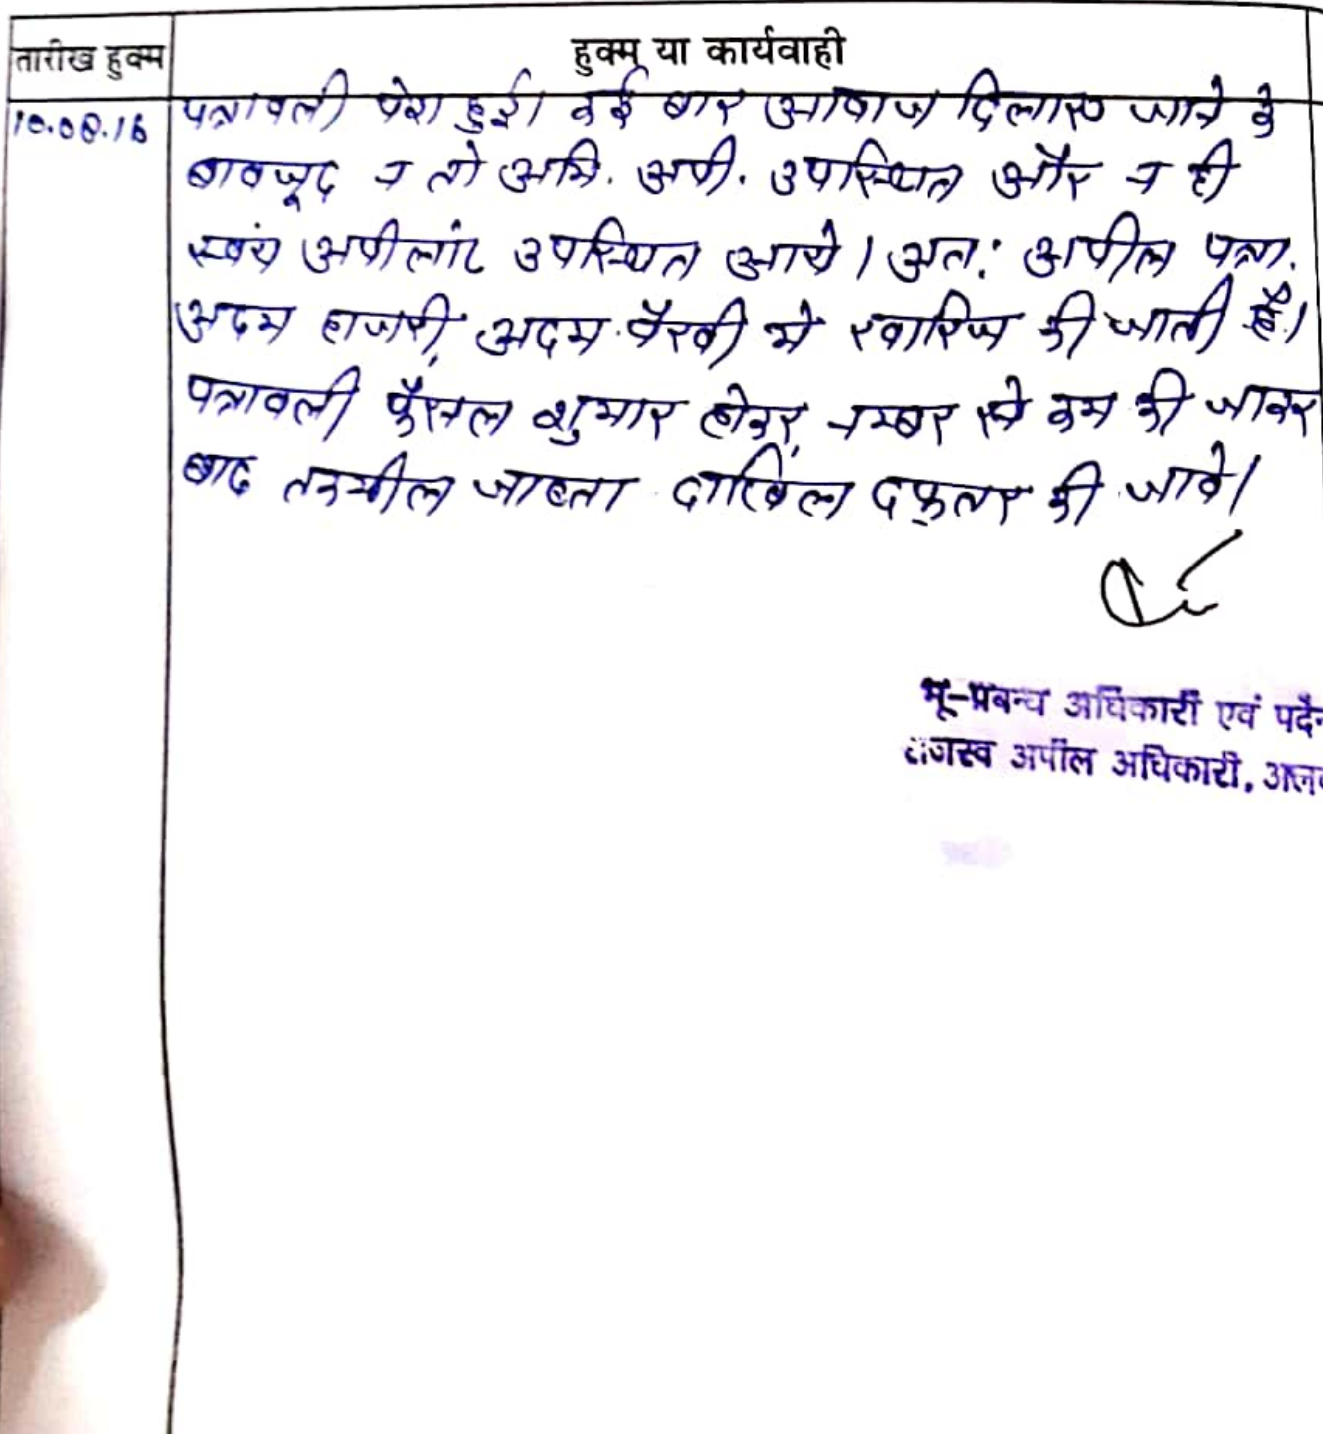 तारीख हुक्म
हुक्म या कार्यवाही
10.08.16
पत्रावली पेश हुई। कई बार आवाज दिलाए जाने के
बावजूद न तो अभि. अपी. उपस्थित और न ही
स्वंय अपीलांट उपस्थित आये। अत: अपील पत्रा.
अदम हाजरी, अदम पैरवी मे खारिज की जाती है।
पत्रावली फैसल शुमार होकर, नम्बर से कम की जाकर
बाद तकमील जाब्ता दाखिल दफ्तर की जावे।
भू-प्रबन्ध अधिकारी एवं पदेन
राजस्व अपील अधिकारी, अलव